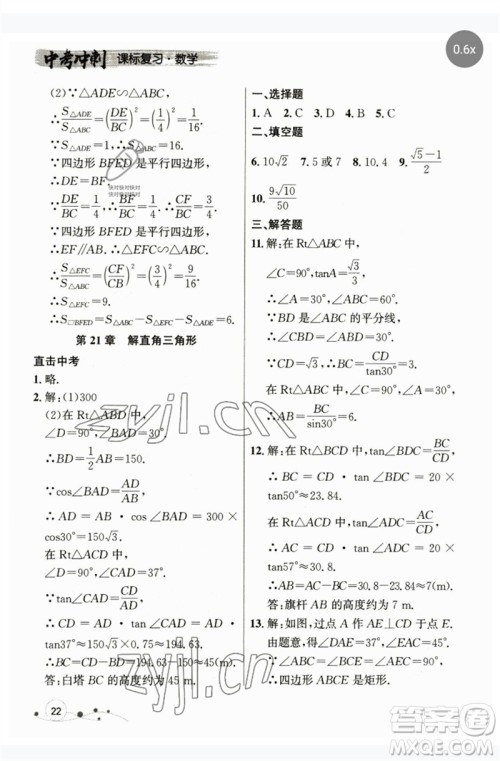 0.6x
中考冲刺 课标复习·数学
(2)∵△ADE∽△ABC,
∴S△ADE/S△ABC=(DE/BC)²=(1/4)²=1/16.
∵四边形BFED是平行四边形,
∴DE=BF.
∴DE/BC=BF/BC=1/4.
∴CF/BC=3/4.
∵EF∥AB,
∴△EFC∽△ABC.
∴S△EFC/S△ABC=(CF/CB)²=(3/4)²=9/16.
∴S△EFC=9.
∴S▱BFED=S△ABC-S△EFC-S△ADE=6.
第21章 解直角三角形
直击中考
1. 略.
2. 解:(1)300
(2)在Rt△ABD中,
∠D=90°,∠BAD=30°,
∴BD=1/2AB=150.
∵cos∠BAD=AD/AB,
∴AD=AB·cos∠BAD=300×
cos30°=150√3.
在Rt△ACD中,
∠D=90°,∠CAD=37°.
∵tan∠CAD=CD/AD,
∴CD=AD·tan∠CAD=150√3×
tan37°≈150√3×0.75≈194.63.
∴BC=CD-BD≈194.63-150≈45(m).
答:白塔BC的高度约为45 m.
22
一、选择题
1. A 2. D 3. B 4. A 5. C
二、填空题
6. 10√2 7. 5或7 8. 10.4 9. (√5-1)/2
10. 9√10/50
三、解答题
11. 解:在Rt△ABC中,
∠C=90°,tanA=√3/3,
∴∠A=30°.∴∠ABC=60°.
∵BD是∠ABC的平分线,
∴∠CBD=∠ABD=30°.
∵CD=√3,∴BC=CD/tan30°=3.
在Rt△ABC中,∠C=90°,∠A=30°,
∴AB=BC/sin30°=6.
12. 解:在Rt△BCD中,tan∠BDC=BC/CD,
∴BC=CD·tan∠BDC=20×
tan50°≈23.84.
在Rt△ACD中,tan∠ADC=AC/CD,
∴AC=CD·tan∠ADC=20×
tan57°≈30.8.
∴AB=AC-BC=30.8-23.84≈7(m).
答:旗杆AB的高度约为7 m.
13. 解:如图,过点A作AE⊥CD于点E.
由题意,得∠DAE=37°,∠EAC=
∴四边形
zyjl.cn
zyjl.cn